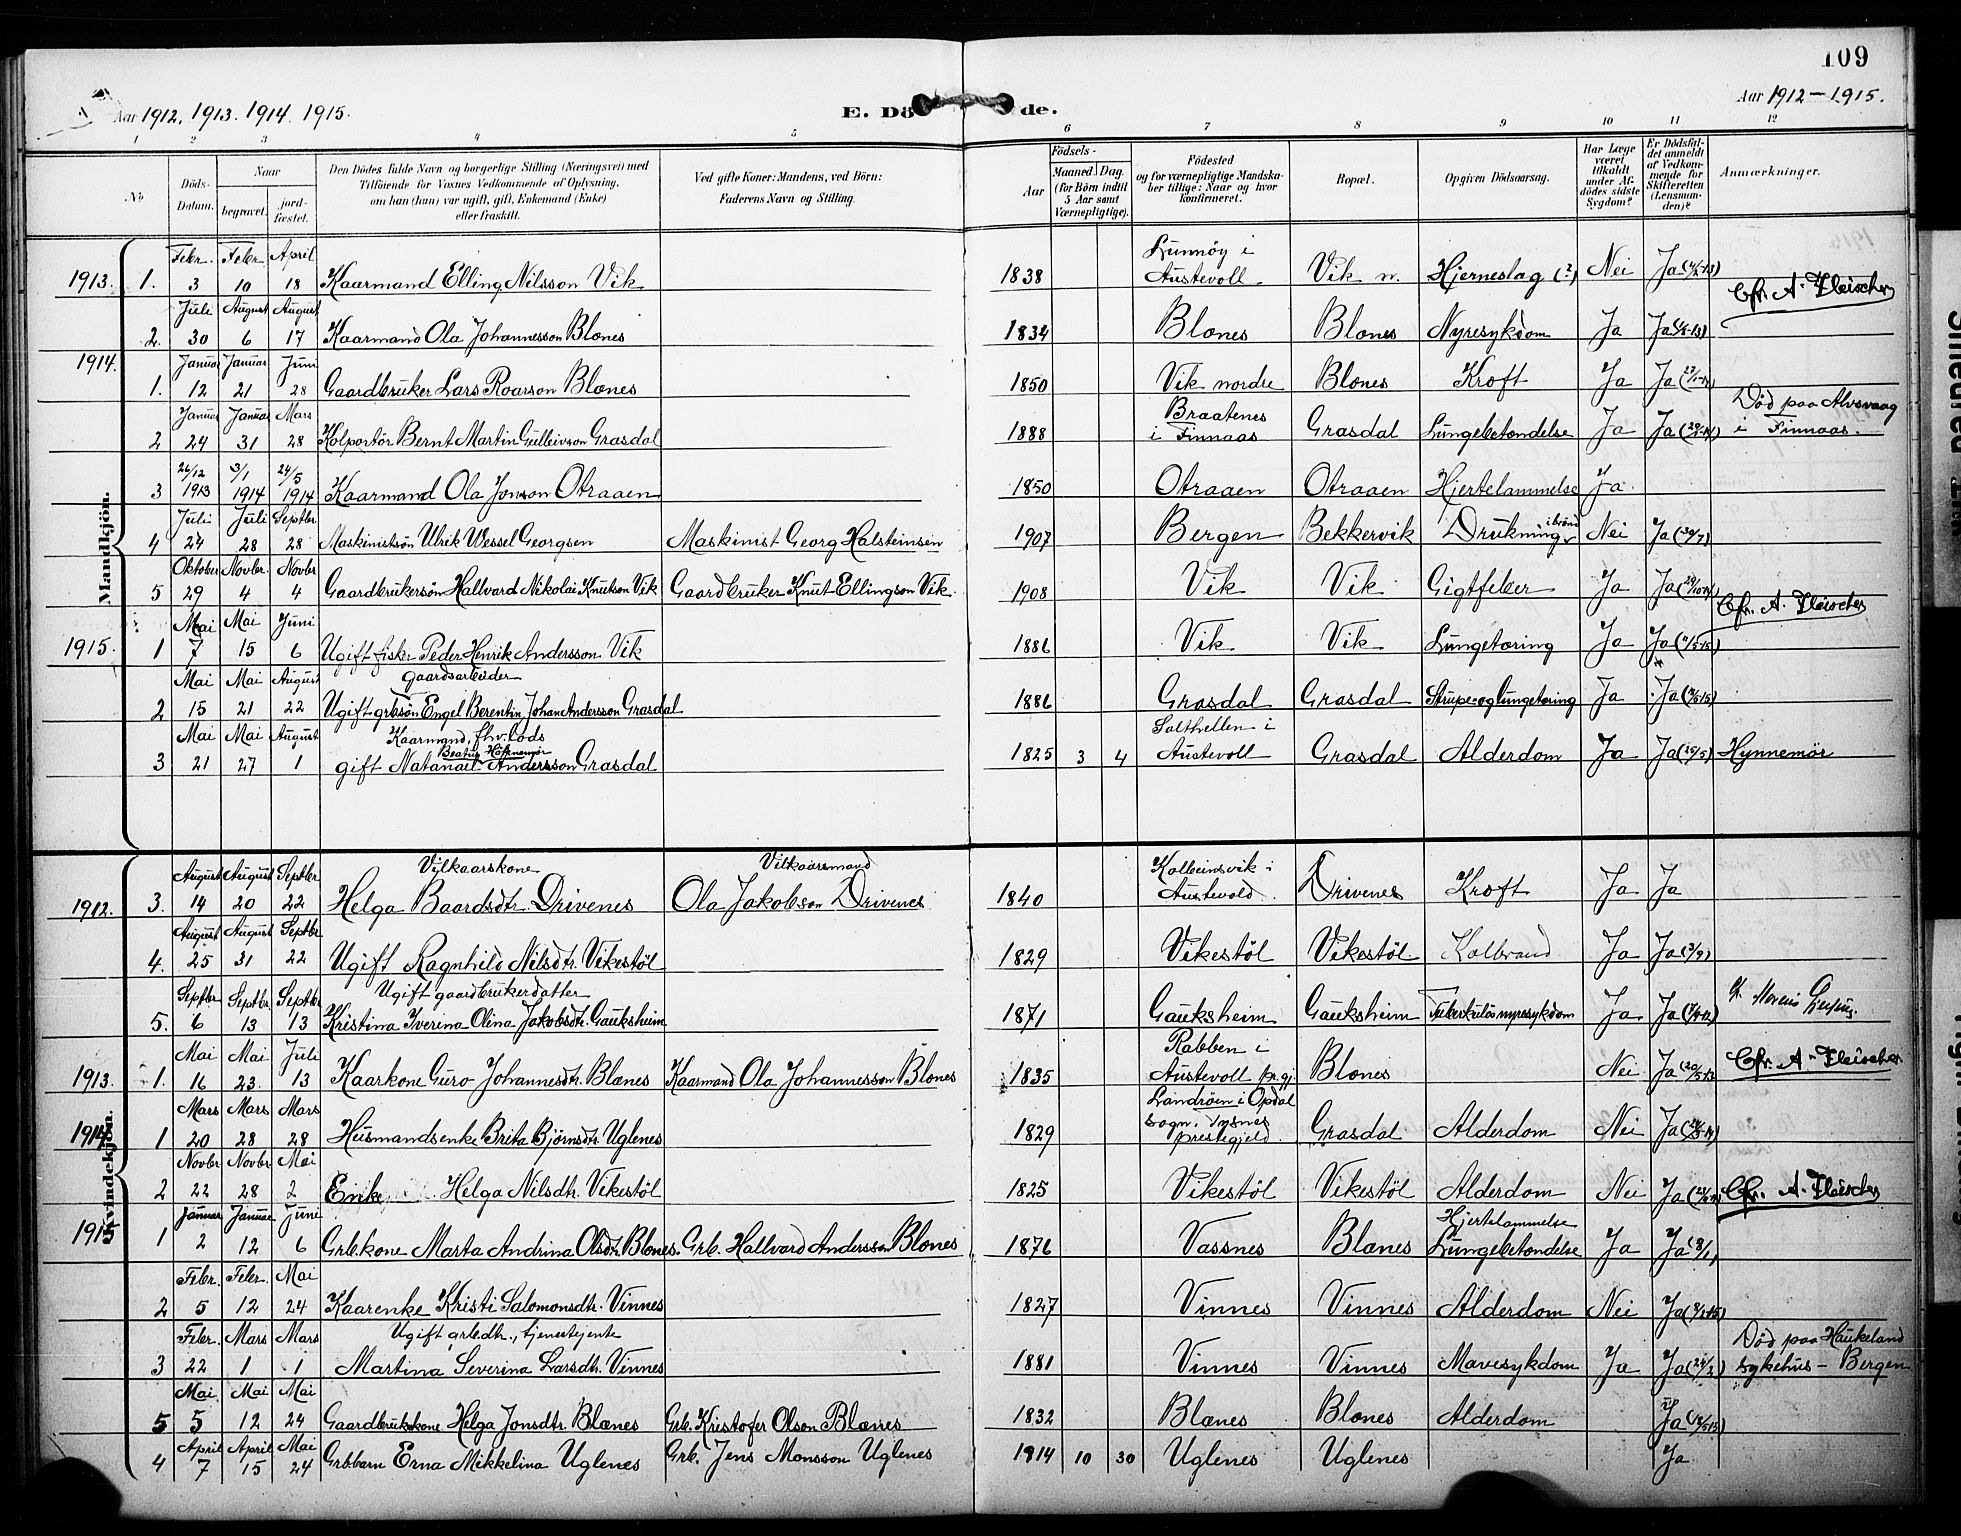 109
Aar 1912, 1913. 1914. 1915.
E. Dö de.
Aar 1912 - 1915.
1 2 3 4 5 6 7 8 9 10 11 12
No
Döds-Datum.
Naar
begravet.
jord-fæstet.
Den Dödes fulde Navn og borgerlige Stilling (Næringsvei) med
Tilföiende for Voxnes Vedkommende af Oplysning,
om han (hun) var ugift, gift, Enkemand (Enke)
eller fraskilt.
Ved gifte Koner: Mandens, ved Börn:
Faderens Navn og Stilling.
Födsels-
Aar
Maaned. Dag.
(for Börn indtil
5 Aar samt
Værnepligtige).
Födested
og for værnepligtige Mandska-
ber tillige: Naar og hvor
konfirmeret.
Bopæl.
Opgiven Dödsaarsag.
Har Læge
været
tilkaldt
under Af-
dödes sidste
Sygdom?
Er Dödsfal-
det anmeldt
af Vedkom-
mende for
Skifteretten
(Lensman-
den)?
Anmærkninger.
Mandkjön.
1913. 1. Febr. 3 Febr. 10 April 18 Kaarmand Elling Nilsson Vik 1838 Lunnöy i Austevoll Vik n. Hjerneslag (?) Nei Ja (4/2-13)
Cfr. A. Fleischer
2. Juli 30 August 6 August 17 Kaarmand Ola Johannesson Blænes 1834 Blænes Blænes Nyresykdom Ja Ja
1914. 1. Januar 12 Januar 21 Juni 28 Gaardbruker Lars Roarson Blænes 1850 Vik nordre Blænes Kræft Ja Ja
2 Januar 24 Januar 31 Mars 28 Kolportör Bernt Martin Gulleivson Grasdal 1888 Braatenes i Finnaas Grasdal Lungebetændelse Ja Ja Död paa Alvsvaag i Finnaas.
3 26/12 1913 3/1 1914 24/5 1914 Kaarmand Ola Jonson Otraaen 1850 Otraaen Otraaen Hjertelammelse Ja
4 Juli 24 Juli 28 Septbr 28 Maskinistsön Ulrik Wessel Georgsen Maskinist Georg Halsteinsen 1907 Bergen Bekkervik Drukning i brönd Nei Ja (30/7)
5 Oktober 29 Novbr. 4 Novbr 4 Gaardbrukersön Hallvard Nikolai Knutson Vik Gaardbruker Knut Ellingson Vik. 1908 Vik Vik Gigtfeber Ja Ja (29/10-14)
Cfr. A. Fleischer
1915. 1 Mai 7 Mai 15 Juni 6 Ugift fisker Peder Henrik Andersson Vik 1886 Vik Vik Lungetæring Ja Ja (11/5-15)
2 Mai 15 Mai 21 August 22 gaardsarbeider Ugift grbsön Engel Berentin Johan Andersson Grasdal 1886 Grasdal Grasdal Strupe- og lungetæring Ja Ja
3 Mai 21 Mai 27 August 1 Kaarmand, fhv. lods gift Natanael Andersson Grasdal 1825 3 4 Salthellen i Austevoll Grasdal Alderdom Ja Ja (25/5) Hynnemör
Kvindekjön.
1912. 3. August 14 August 20 Septbr 22 Vilkaarskone Helga Baardsdtr. Drivenes Vilkaarsmand Ola Jakobson Drivenes 1840 Kolbeinsvik i Austevold Drivenes Kræft Ja Ja
4. August 25 August 31 Septbr 22 Ugift Ragnhild Nilsdtr. Vikestöl 1829 Vikestöl Vikestöl Kolbrand Ja Ja (3/9)
5. Septbr 6 Septbr. 13 Septbr 13 Ugift gaardbrukerdatter Kristina Iverina Olina Jakobsdtr. Gauksheim 1871 Gauksheim Gauksheim Tuberkulös nyresykdom Ja Ja
1913. 1. Mai 16 Mai 23. Juli 13 Kaarkone Guro Johannesdtr. Blænes Kaarmand Ola Johannesson Blænes 1835 Rabben i Austevoll pr.gj. Blænes Nei Ja (20/5-13 Cfr. A. Fleischer
1914 1 Mars 20 Mars 28 Mars 28 Husmandsenke Brita Björnsdtr. Uglenes 1829 Landröen i Opdal sogn. Tysnes prestegjeld. Grasdal Alderdom Nei Ja
2 Novbr 22 Novbr 28 Mai 2 Enke Helga Nilsdtr. Vikestöl 1825 Vikestöl Vikestöl Alderdom Nei Ja Cfr. A. Fleischer
191 1 Januar 2 Januar 12 Juni 6 Grb.kone Marta Andrina Olsdtr. Blænes. Grb. Hallvard Andersson Blænes 1876 Vassnes Blænes Hjertelammelse Lungebetændelse Ja Ja (8/1)
2 Febr. 5 Febr. 12 Mai 24 Kaarenke Kristi Salomonsdtr. Vinnes 1827 Vinnes Vinnes Alderdom Nei Ja (8/2-15)
3 Febr. 22 Mars 1 Mars 1 Ugift grb.dtr., tjenestejente Martina Severina Larsdtr. Vinnes 1881 Vinnes Vinnes Mavesykdom Ja Ja (24/2) Död paa Haukeland sykehus - Bergen
5 Mai 5 Mai 12 Mai 24 Gaardbrukskone Helga Jonsdtr. Blænes Grb. Kristofer Olson Blænes 1832 Blænes Blænes Alderdom Ja
4 April 7 April 15 Mai 24 Grb.barn Erna Mikkelina Uglenes Grb. Jens Monsson Uglenes 1914 10 30 Uglenes Uglenes Ja